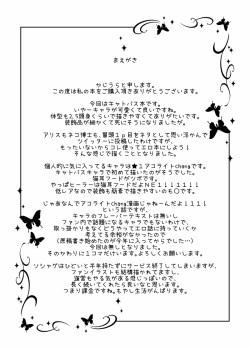 まえがき
やじうらと申します。
この度は私の本をご購入頂きありがとうございます。
今回はキャットバス本です。
いやーキャラが可愛くて良いですね。
体型も2.5頭身くらいで描きやすくてありがたいです。
装飾品が細かくて死にそうになりましたが。
アリスもネコ博士も、冒頭1p目をネタとして思い浮かんで
ツイッターに投稿したわけですが、
もったいないからコレ使ってエロ本にしよう!
そんな感じで描くこととなりました。
個人的に気に入ってるキャラは★1アコライトchangです。
キャットバスキャラで初めて描いたのがそうでした。
猫耳フードがツボです。
やっぱヒーラーは猫耳フードだよNE!!!!!!
低レアなので装飾も簡素で描きやすいのも○です。
じゃあなんでアコライトchang漫画じゃねーんだよ!!!!
という話ですが、
キャラのフレーバーテキストは無いし
ファン内で話題になるキャラでもないわけで、
取っ掛かりもなくどうやってエロ話に持っていくか
考えてる余裕がなかったので
(原稿書き始めたのが今年に入ってからでした…)
今回は無しとなりました。
そのかわりに1コマだけいます。よろしくお願いします。
ソシャゲはひどいと半年持たずにサービス終了してしまいますが、
ファンイラストも結構描かれてますし、
運営もやる気がある感じっぽいので、
長く続いてくれたら良いなと思います。
つまり課金ですね。もやし生活がんばります。